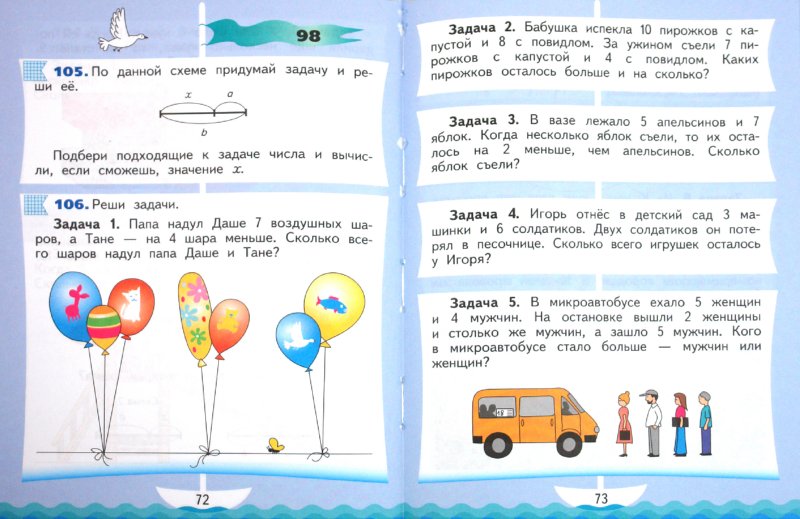 98
105. По данной схеме придумай задачу и ре-
ши её.
x a
b
Подбери подходящие к задаче числа и вычис-
ли, если сможешь, значение x.
106. Реши задачи.
Задача 1. Папа надул Даше 7 воздушных ша-
ров, а Тане — на 4 шара меньше. Сколько все-
го шаров надул папа Даше и Тане?
72
Задача 2. Бабушка испекла 10 пирожков с ка-
пустой и 8 с повидлом. За ужином съели 7 пи-
рожков с капустой и 4 с повидлом. Каких
пирожков осталось больше и на сколько?
Задача 3. В вазе лежало 5 апельсинов и 7
яблок. Когда несколько яблок съели, то их оста-
лось на 2 меньше, чем апельсинов. Сколько
яблок съели?
Задача 4. Игорь отнёс в детский сад 3 ма-
шинки и 6 солдатиков. Двух солдатиков он поте-
рял в песочнице. Сколько всего игрушек осталось
у Игоря?
Задача 5. В микроавтобусе ехало 5 женщин
и 4 мужчин. На остановке вышли 2 женщины
и столько же мужчин, а зашло 5 мужчин. Кого
в микроавтобусе стало больше — мужчин или
женщин?
73